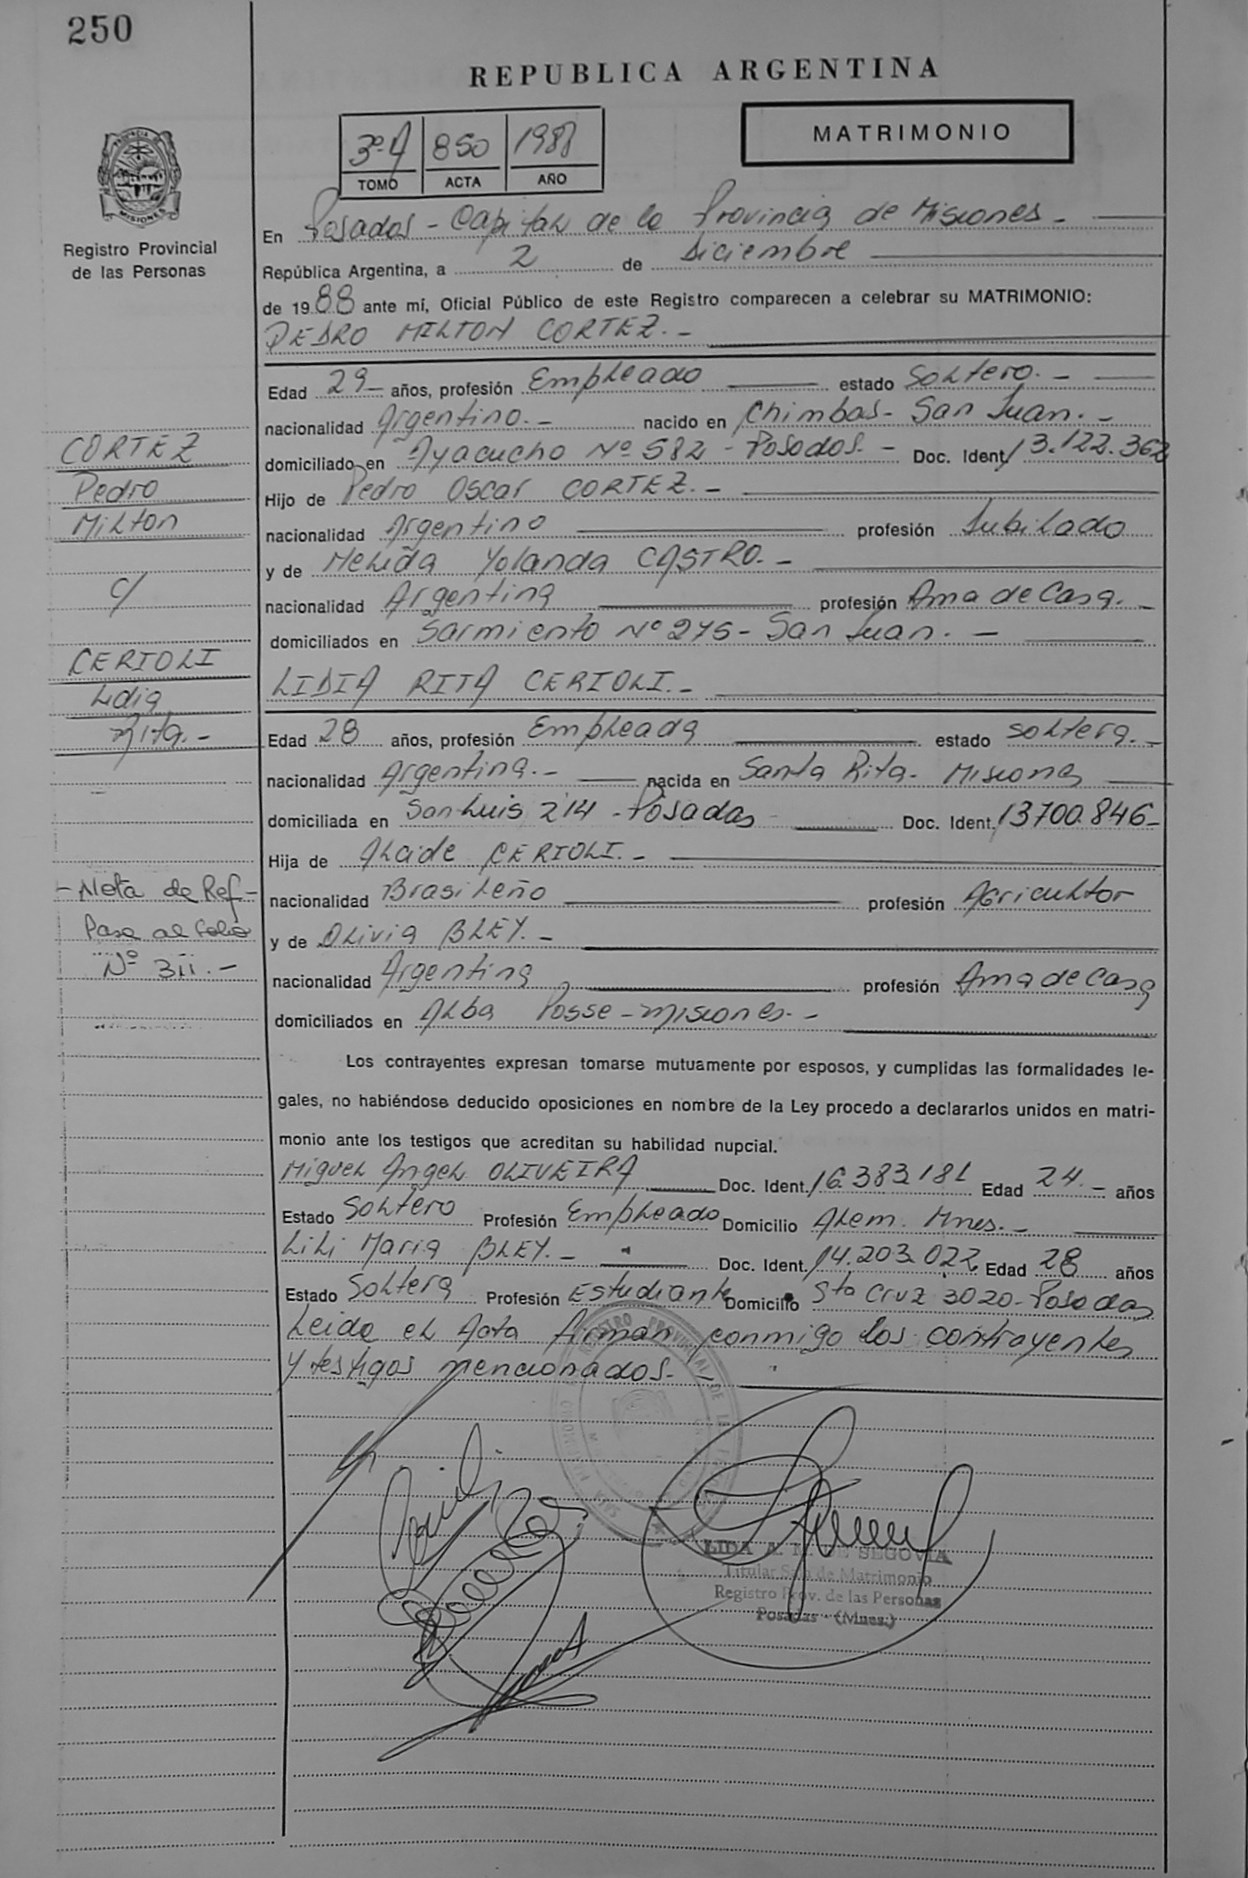 250
REPUBLICA ARGENTINA
MATRIMONIO
3º A 850 1988
TOMO ACTA AÑO
PROVINCIA DE
MISIONES
Registro Provincial
de las Personas
En Posadas - Capital de la Provincia de Misiones -
República Argentina, a 2 de Diciembre
de 1988 ante mí, Oficial Público de este Registro comparecen a celebrar su MATRIMONIO:
PEDRO MILTON CORTEZ. -
Edad 29 - años, profesión Empleado estado Soltero. -
nacionalidad Argentino. - nacido en Chimbas - San Juan. -
domiciliado en Ayacucho Nº 582 - Posadas. - Doc. Ident. 13.122.362
Hijo de Pedro Oscar CORTEZ. -
nacionalidad Argentino profesión Jubilado
y de Melida Yolanda CASTRO. -
nacionalidad Argentina profesión Ama de Casa. -
domiciliados en Sarmiento Nº 275 - San Juan. -
LIDIA RITA CERIOLI. -
Edad 28 años, profesión Empleada estado soltera. -
nacionalidad Argentina. - nacida en Santa Rita - Misiones
domiciliada en San Luis 214 - Posadas Doc. Ident. 13700.846 -
Hija de Alcide CERIOLI. -
nacionalidad Brasileño profesión Agricultor
y de Olivia BLEY. -
nacionalidad Argentina profesión Ama de Casa
domiciliados en Alba Posse - Misiones. -
Los contrayentes expresan tomarse mutuamente por esposos, y cumplidas las formalidades le-
gales, no habiéndose deducido oposiciones en nombre de la Ley procedo a declararlos unidos en matri-
monio ante los testigos que acreditan su habilidad nupcial.
Miguel Angel OLIVEIRA Doc. Ident. 16.383.181 Edad 24. - años
Estado Soltero Profesión Empleado Domicilio Alem. Mnes. -
Lili Maria BLEY. - Doc. Ident. 14.203.022 Edad 28 años
Estado Soltera Profesión Estudiante Domicilio Sta Cruz 3020 - Posadas
Leida el Acta firman conmigo los contrayentes
y testigos mencionados. -
CORTEZ
Pedro
Milton
c/
CERIOLI
Lidia
Rita. -
- Nota de Ref -
Pasa al folio
Nº 311. -
REGISTRO PROVINCIAL DE LAS
LIDA A. DE SEGOVIA
Titular Sala de Matrimonio
Registro Prov. de las Personas
Posadas - (Mnes.)